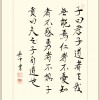 子曰君子道者三我
無能焉仁者不憂知
者不惑勇者不懼子
貢曰夫子自道也